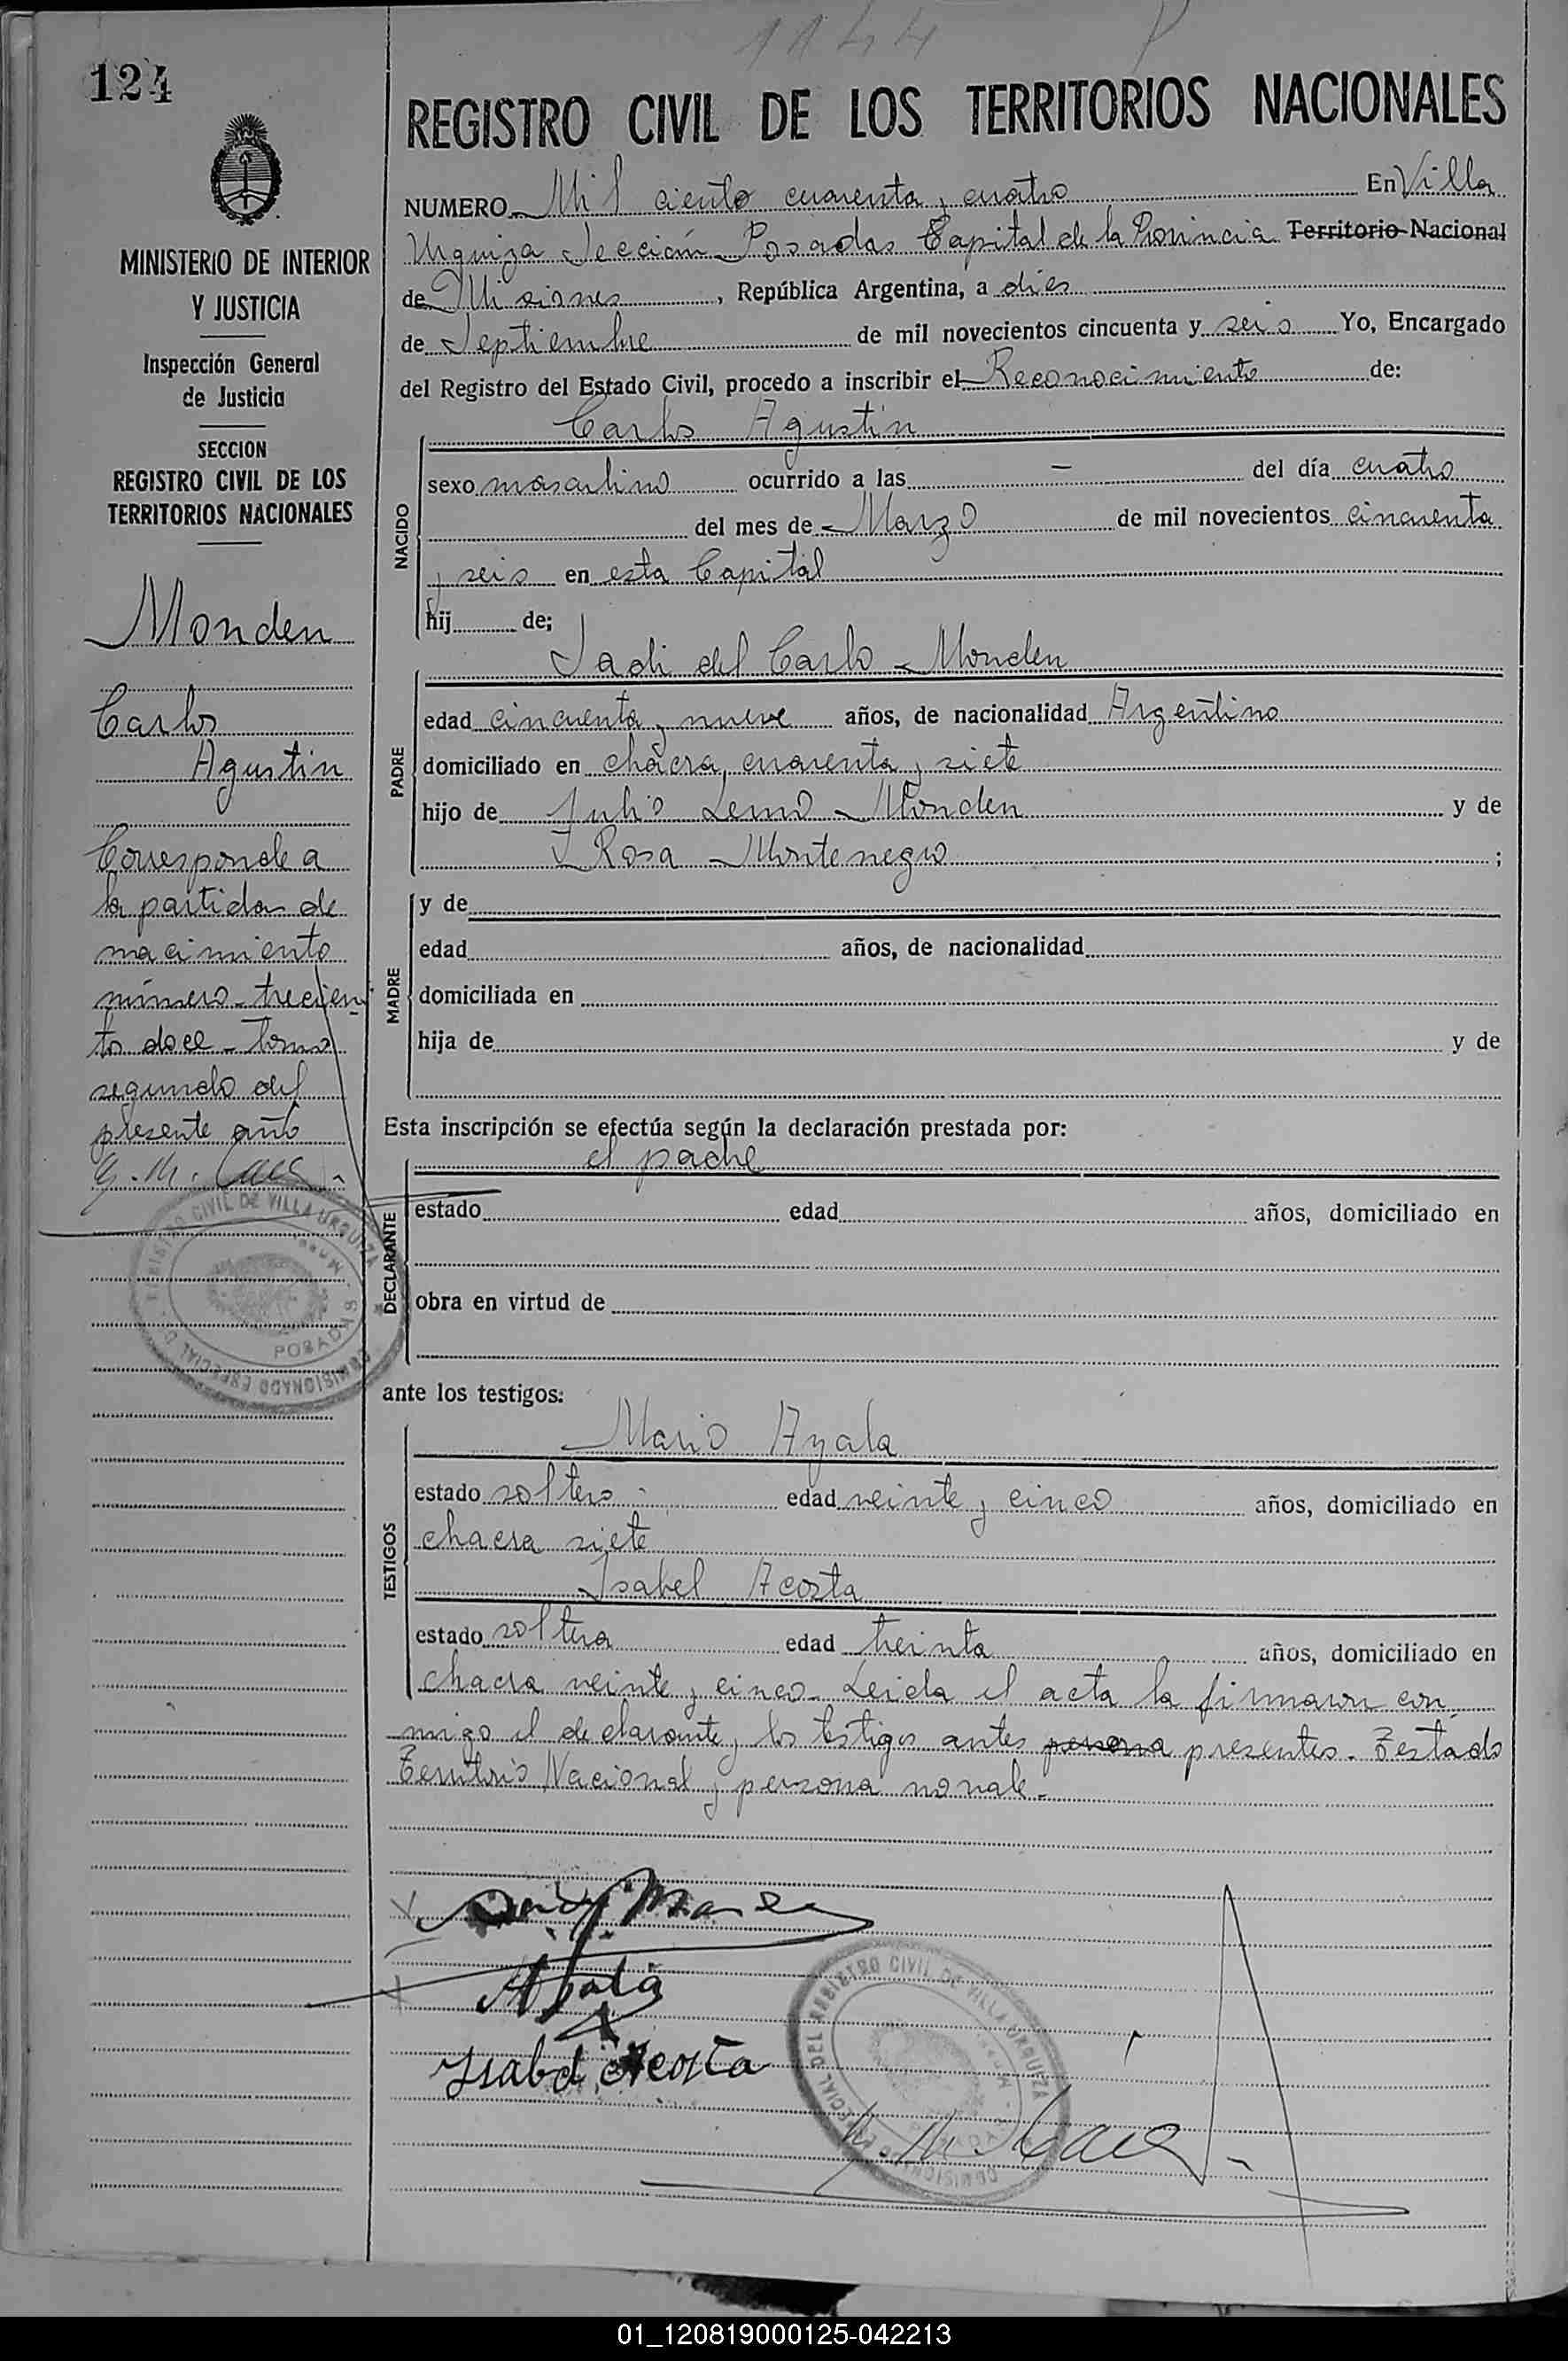 1144
124
REGISTRO CIVIL DE LOS TERRITORIOS NACIONALES
MINISTERIO DE INTERIOR
Y JUSTICIA
Inspección General
de Justicia
SECCION
REGISTRO CIVIL DE LOS
TERRITORIOS NACIONALES
Monden
Carlos
Agustin
Corresponde a
la partida de
nacimiento
número trecien
to doce - Tomo
segundo del
presente año
NUMERO Mil ciento cuarenta y cuatro En Villa
Urquiza Sección Posadas Capital de la Provincia Territorio Nacional
de Misiones, República Argentina, a dies
de Septiembre de mil novecientos cincuenta y seis Yo, Encargado
del Registro del Estado Civil, procedo a inscribir el Reconocimiento de:
Carlos Agustin
NACIDO
sexo masculino ocurrido a las — del día cuatro
del mes de Marzo de mil novecientos cincuenta
y seis en esta Capital
hij de;
Sadi del Carlo Monden
PADRE
edad cincuenta y nueve años, de nacionalidad Argentino
domiciliado en chacra cuarenta y siete
hijo de Julio Lemo Monden y de
Rosa Montenegro ;
MADRE
y de
edad años, de nacionalidad
domiciliada en
hija de y de
Esta inscripción se efectúa según la declaración prestada por:
el padre
DECLARANTE
estado edad años, domiciliado en
obra en virtud de
ante los testigos:
Mario Ayala
TESTIGOS
estado soltero edad veinte y cinco años, domiciliado en
chacra siete
Isabel Acosta
estado soltera edad treinta años, domiciliado en
chacra veinte y cinco - Leida el acta la firmaron con
migo el declarante y los testigos antes persona presentes - Testado
Territorio Nacional y persona no vale -
Isabel Acosta
REGISTRO CIVIL DE VILLA URQUIZA
POSADAS
COMISIONADO ESPECIAL
COMISIONADO ESPECIAL DEL REGISTRO CIVIL DE VILLA URQUIZA
01_120819000125-042213